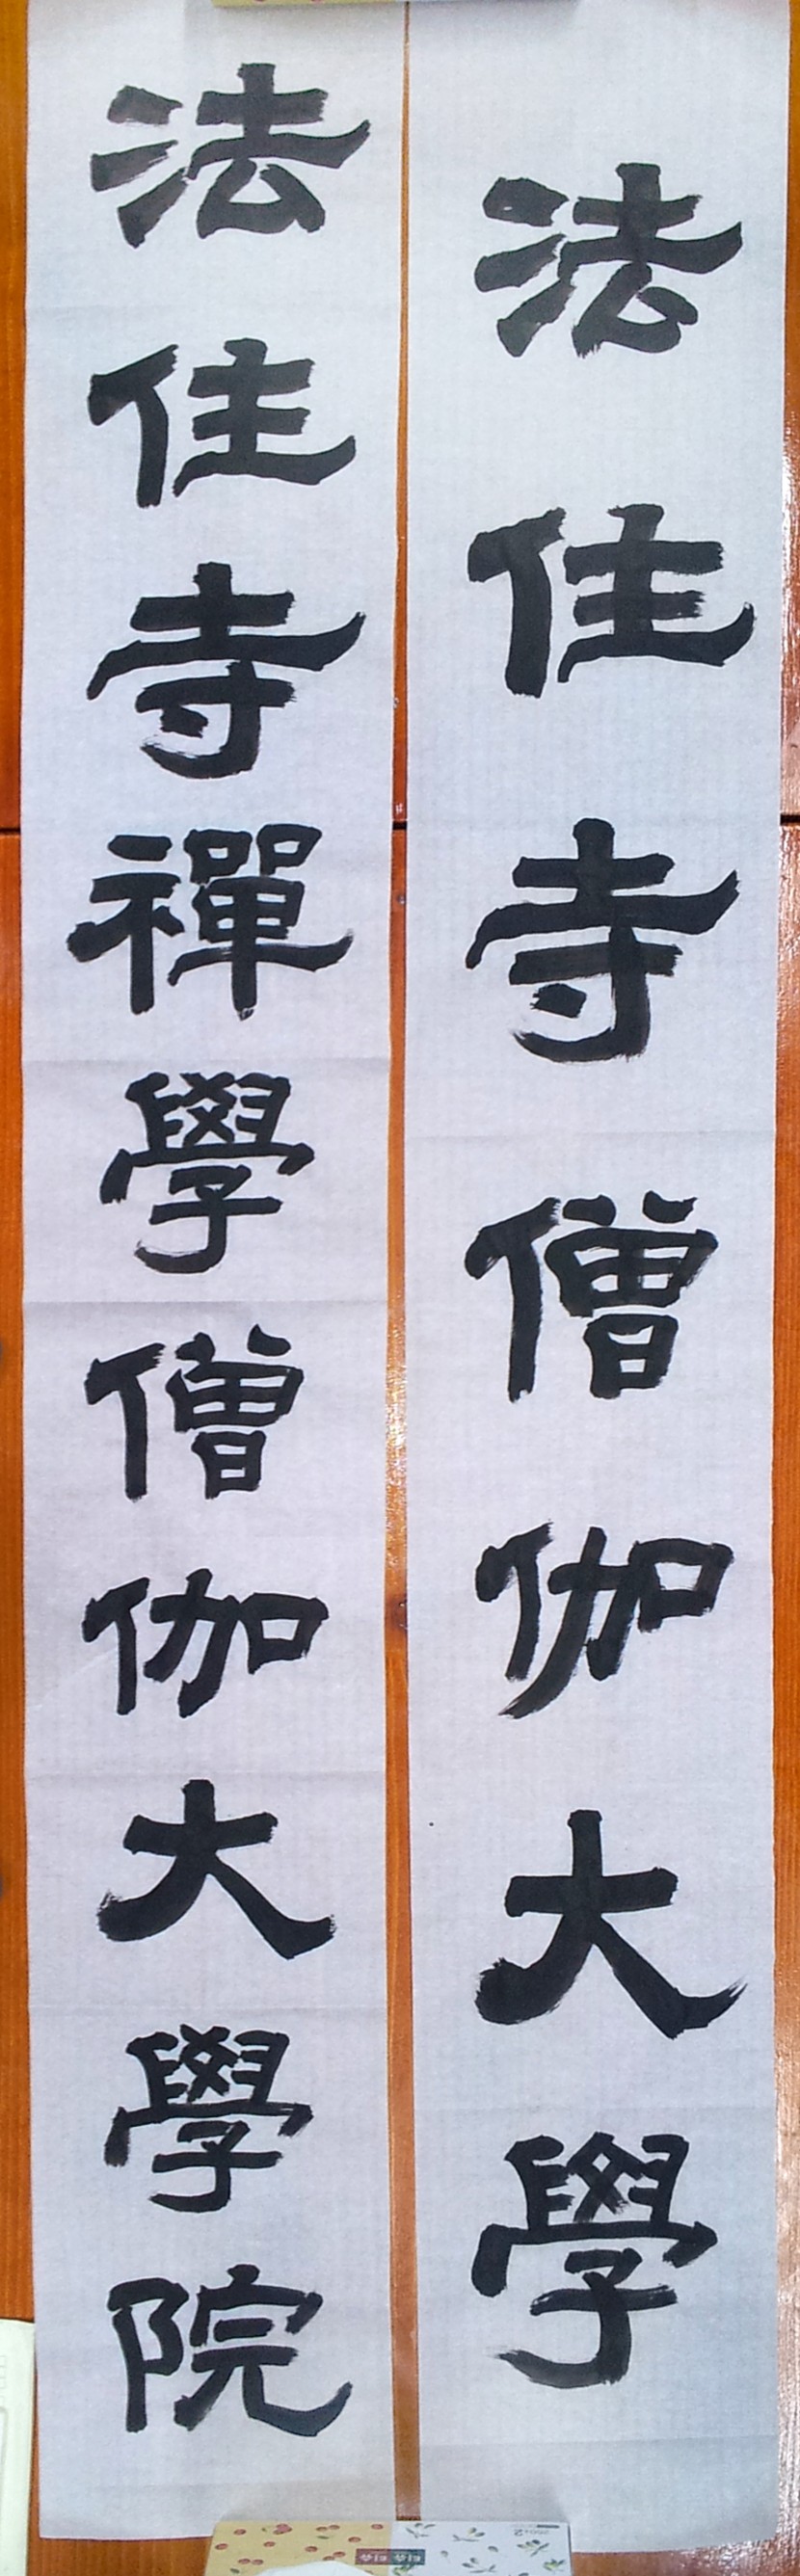 法住寺僧伽大學
法住寺禪學僧伽大學院